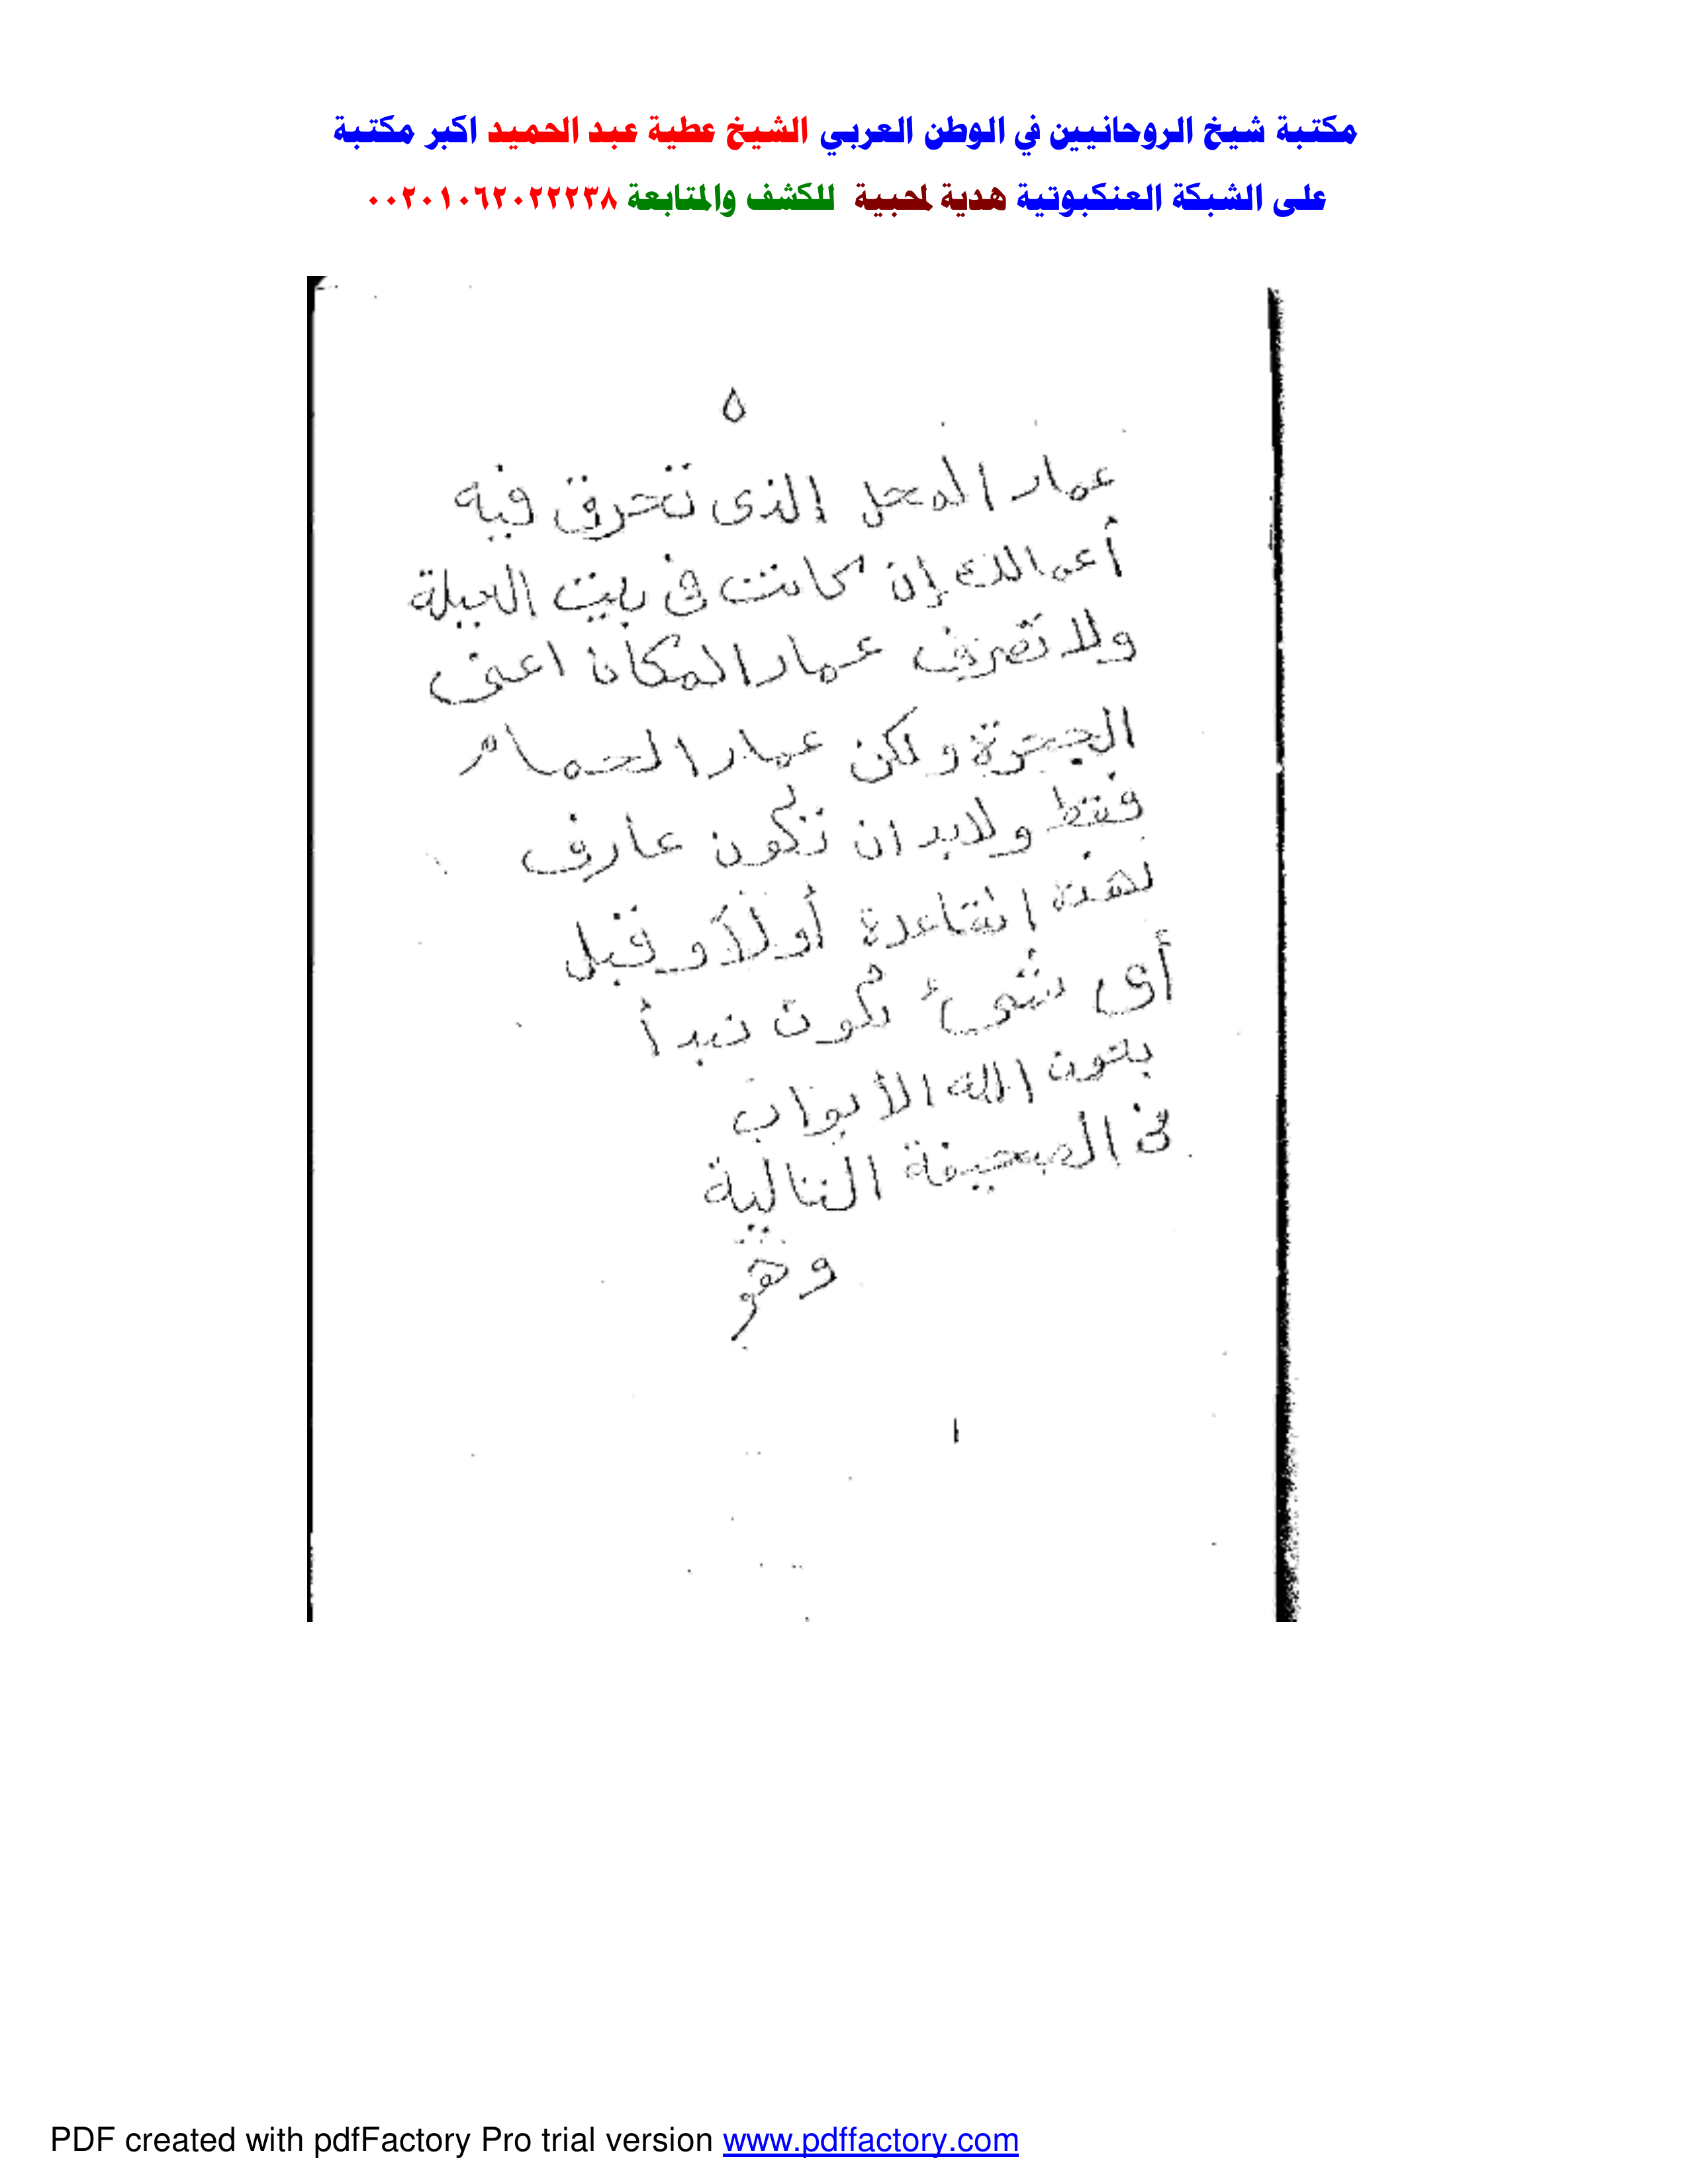 مكتبة شيخ الروحانيين في الوطن العربي الشيخ عطية عبد الحميد اكبر مكتبة
على الشبكة العنكبوتية هدية لمحبية للكشف والمتابعة ٠٠٢٠١٠٦٢٠٢٢٢٣٨
٥
عمار المحل الذى تحرق فيه
أعمالك إن كانت فى بيت العيلة
ولا تصرف عمار المكان اعنى
الحجرة ولكن عمار الحمام
فقط ولابد ان تكون عارف
لهذه القاعدة أولاً وقبل
أى شىء تكون تبدأ
بعون الله الأبواب
فى الصحيفة التالية
وهو
PDF created with pdfFactory Pro trial version www.pdffactory.com